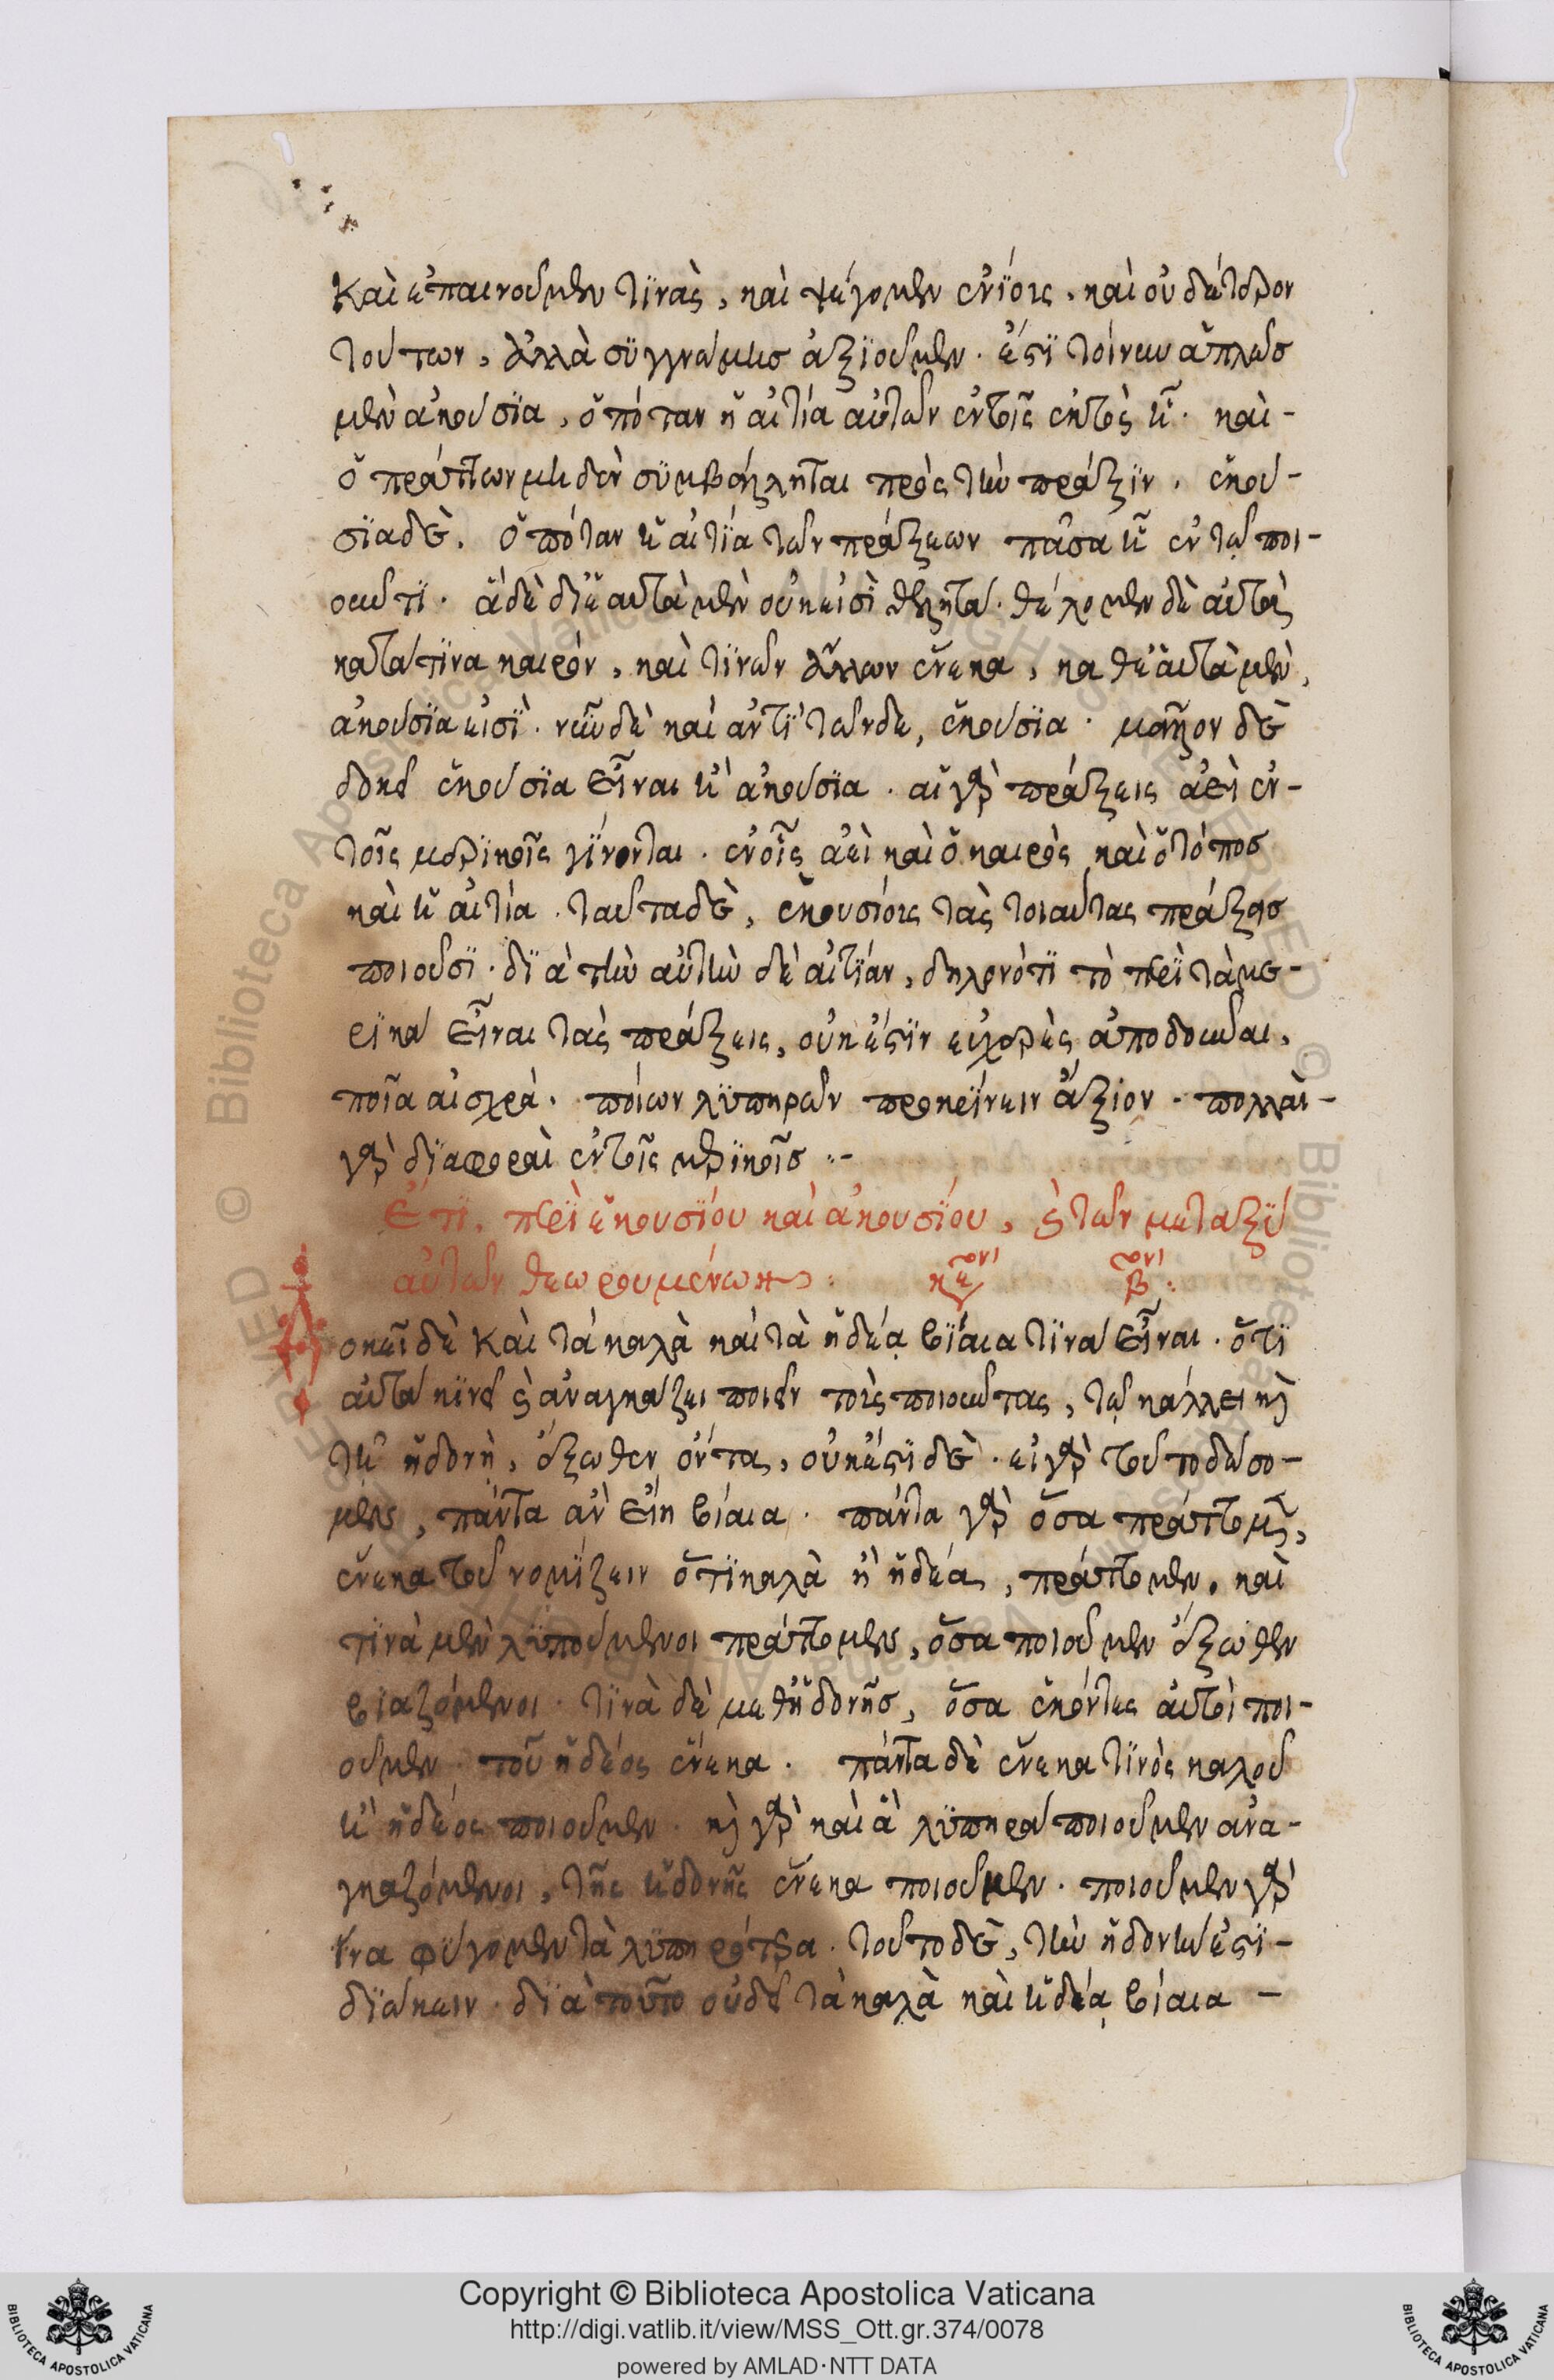 Καὶ ἐπαινοῦμεν τινὰς, καὶ ψέγομεν ἐνίοις. καὶ οὐδέτερον
τούτων, ἀλλὰ συγγνώμης ἀξιοῦμεν. ἔστι τοίνυν ἁπλῶς
μὲν ἀκούσια, ὁπόταν ἡ αἰτία αὐτῶν ἐν τοῖς ἐκτὸς ἦ. καὶ-
ὁ πράττων μηδὲν συμβάλληται πρὸς τὴν πρᾶξιν. ἑκού-
σια δὲ. ὁπόταν ἡ αἰτία τῶν πράξεων πᾶσα ἦ ἐν τῷ ποι-
οῦντι. ἃ δὲ δι' ἑαυτὰ μὲν οὐκ εἰσὶ θελητά. θέλομεν δὲ αὐτὰ
κατά τινα καιρόν, καὶ τινῶν ἄλλων ἕνεκα, καθ' ἑαυτὰ μὲν,
ἀκούσια εἰσὶ. νῦν δὲ καὶ ἀντὶ τῶνδε, ἑκούσια. μᾶλλον δὲ
δοκεῖ ἑκούσια εἶναι ἢ ἀκούσια. αἱ γὰρ πράξεις ἀεὶ ἐν-
τοῖς μερικοῖς γίνονται. ἐν οἷς ἀεὶ καὶ ὁ καιρὸς καὶ ὁ τόπος
καὶ ἡ αἰτία. ταῦτα δὲ, ἑκουσίοις τὰς τοιαύτας πράξεις
ποιοῦσι. διὰ τὴν αὐτὴν δὲ αἰτίαν, δηλονότι τὸ περὶ τὰ με-
ρικὰ εἶναι τὰς πράξεις, οὐκ ἔστιν εὐχερὲς ἀποδοῦναι,
ποῖα αἰσχρὰ. ποίων λυπηρῶν προκρίνειν ἄξιον. πολλαὶ-
γὰρ διαφοραὶ ἐν τοῖς μερικοῖς :-
Ἔτι. περὶ ἑκουσίου καὶ ἀκουσίου, καὶ τῶν μεταξὺ
αὐτῶν θεωρουμένων :
Δοκεῖ δὲ Καὶ τὰ καλὰ καὶ τὰ ἡδέα βίαια τινὰ εἶναι. ὅτι
αὐτὰ κινεῖ καὶ ἀναγκάζει ποιεῖν τοὺς ποιοῦντας, τῷ κάλλει καὶ
τῇ ἡδονῇ, ἔξωθεν ὄντα, οὐκ ἔστι δὲ. εἰ γὰρ τοῦτο δώσο-
μεν, πάντα ἂν εἴη βίαια. πάντα γὰρ ὅσα πράττομεν,
ἕνεκα τοῦ νομίζειν ὅτι καλὰ ἢ ἡδέα, πράττομεν. καὶ
τινὰ μὲν λυπούμενοι πράττομεν, ὅσα ποιοῦμεν ἔξωθεν
βιαζόμενοι. τινὰ δὲ μεθ' ἡδονῆς, ὅσα ἑκόντες αὐτοὶ ποι-
οῦμεν. τοῦ ἡδέος ἕνεκα. πάντα δὲ ἕνεκα τινὸς καλοῦ
ἢ ἡδέος ποιοῦμεν. καὶ γὰρ καὶ ἃ λυπηρὰ ποιοῦμεν ἀνα-
γκαζόμενοι, τῆς ἡδονῆς ἕνεκα ποιοῦμεν. ποιοῦμεν γὰρ
ἵνα φύγομεν τὰ λυπηρότερα. τοῦτο δὲ, τὴν ἡδονὴν ἐστὶ-
διώκειν. διὰ τοῦτο οὐδὲ τὰ καλὰ καὶ ἡδέα βίαια -
Copyright © Biblioteca Apostolica Vaticana
http://digi.vatlib.it/view/MSS_Ott.gr.374/0078
powered by AMLAD·NTT DATA